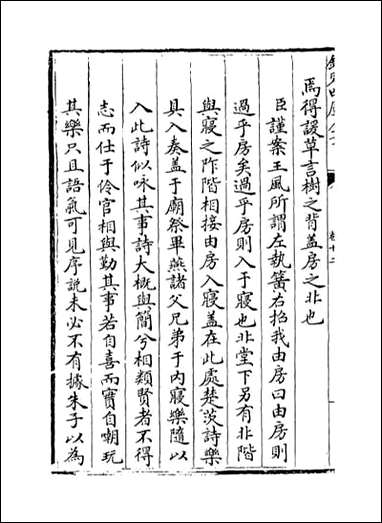 焉得諼草言樹之背盖房之北也
臣謹案王風所謂左執簧右招我由房曰由房則
過乎房矣過乎房則入于寝也非堂下另有北階
與寢之阼階相接由房入寢盖在此處楚茨詩樂
具入奏盖于廟祭畢燕諸父兄弟于内寢樂隨以
入此詩似咏其事詩大概與簡兮相類賢者不得
志而仕于伶官相與勤其事若自喜而實自嘲玩
其樂只且語氣可見序説未必不有據朱子以為